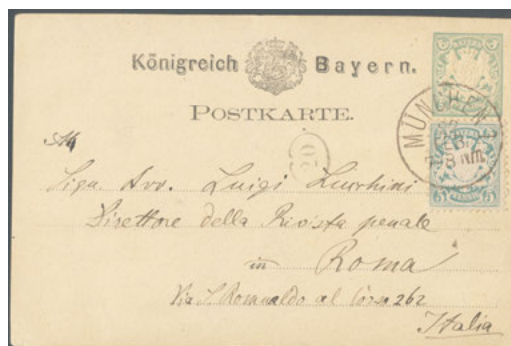 Königreich Bayern.
POSTKARTE.
MÜNCHEN
8 Nm.
20
Sign. Avv. Luigi Lucchini
Direttore della Rivista penale
in Roma
Via S. Romualdo al Corso 262
Italia